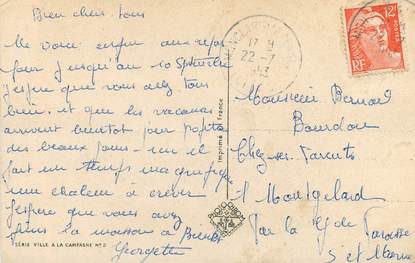 Bien chers tous
Me voici enfin au repos
pour jusqu'au 10 Septembre
J'espère que vous allez tous
bien. et que les vacances
arrivent bientôt pour
des beaux jours - ici il
fait un temps magnifique
une chaleur à crever
J'espère que vous avez
dans la maison à Bientôt
Georgette
SÉRIE VILLE A LA CAMPAGNE No 2
Imprimé en France
17 H
22 - 7
12F
POSTES
RF
Monsieur Bernard
Bourdon
Chez ses Parents
à
Par la
S et Marne